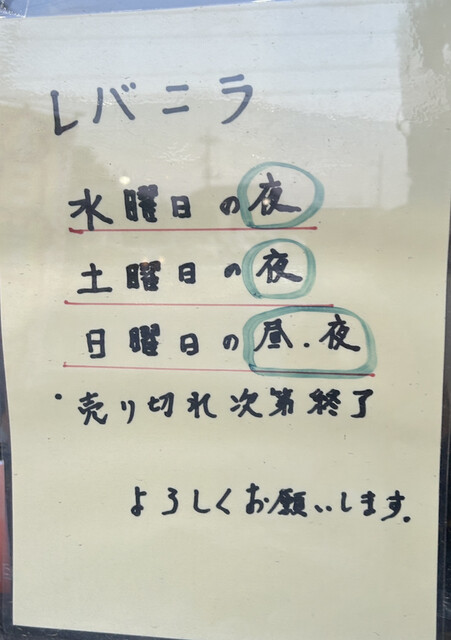 レバニラ
水曜日の夜
土曜日の夜
日曜日の昼.夜
・売り切れ次第終了
よろしくお願いします。